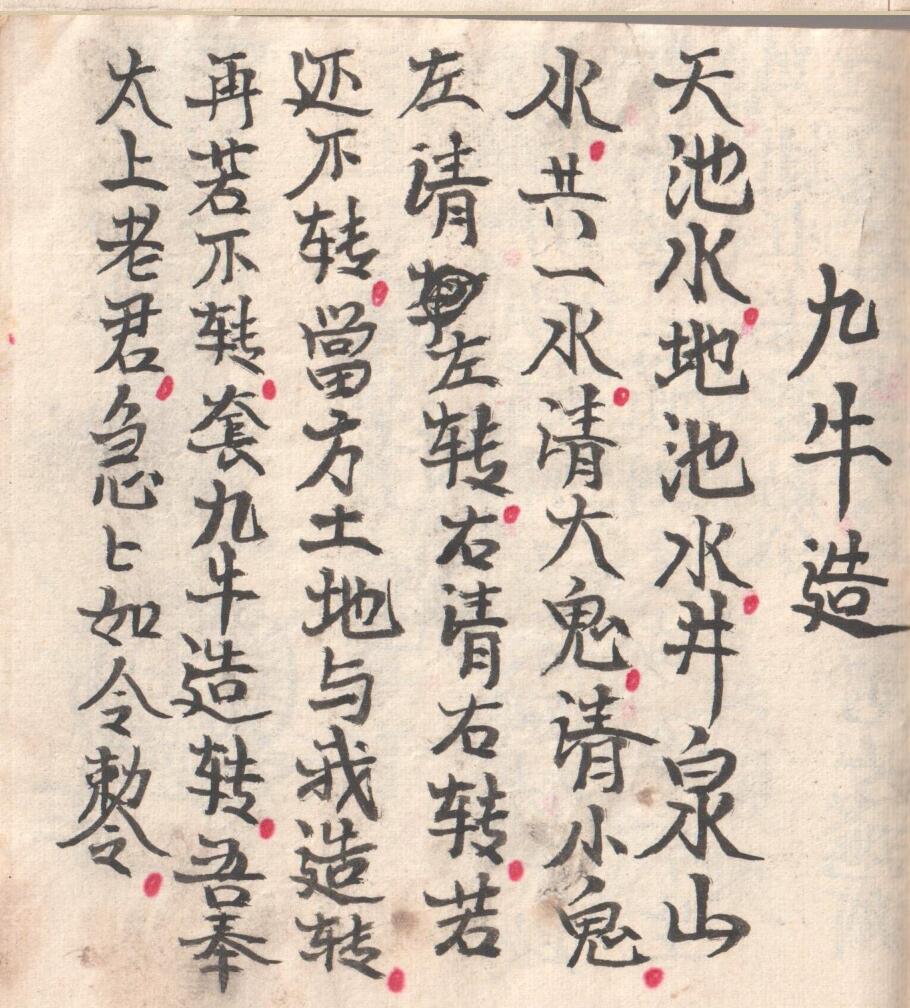 九牛造
天池水地池水井泉山
水共一水清大鬼请小鬼
左请左转右清右转若
还不转當方土地与我造转
再若不转套九牛造转吾奉
太上老君急々如令勅令